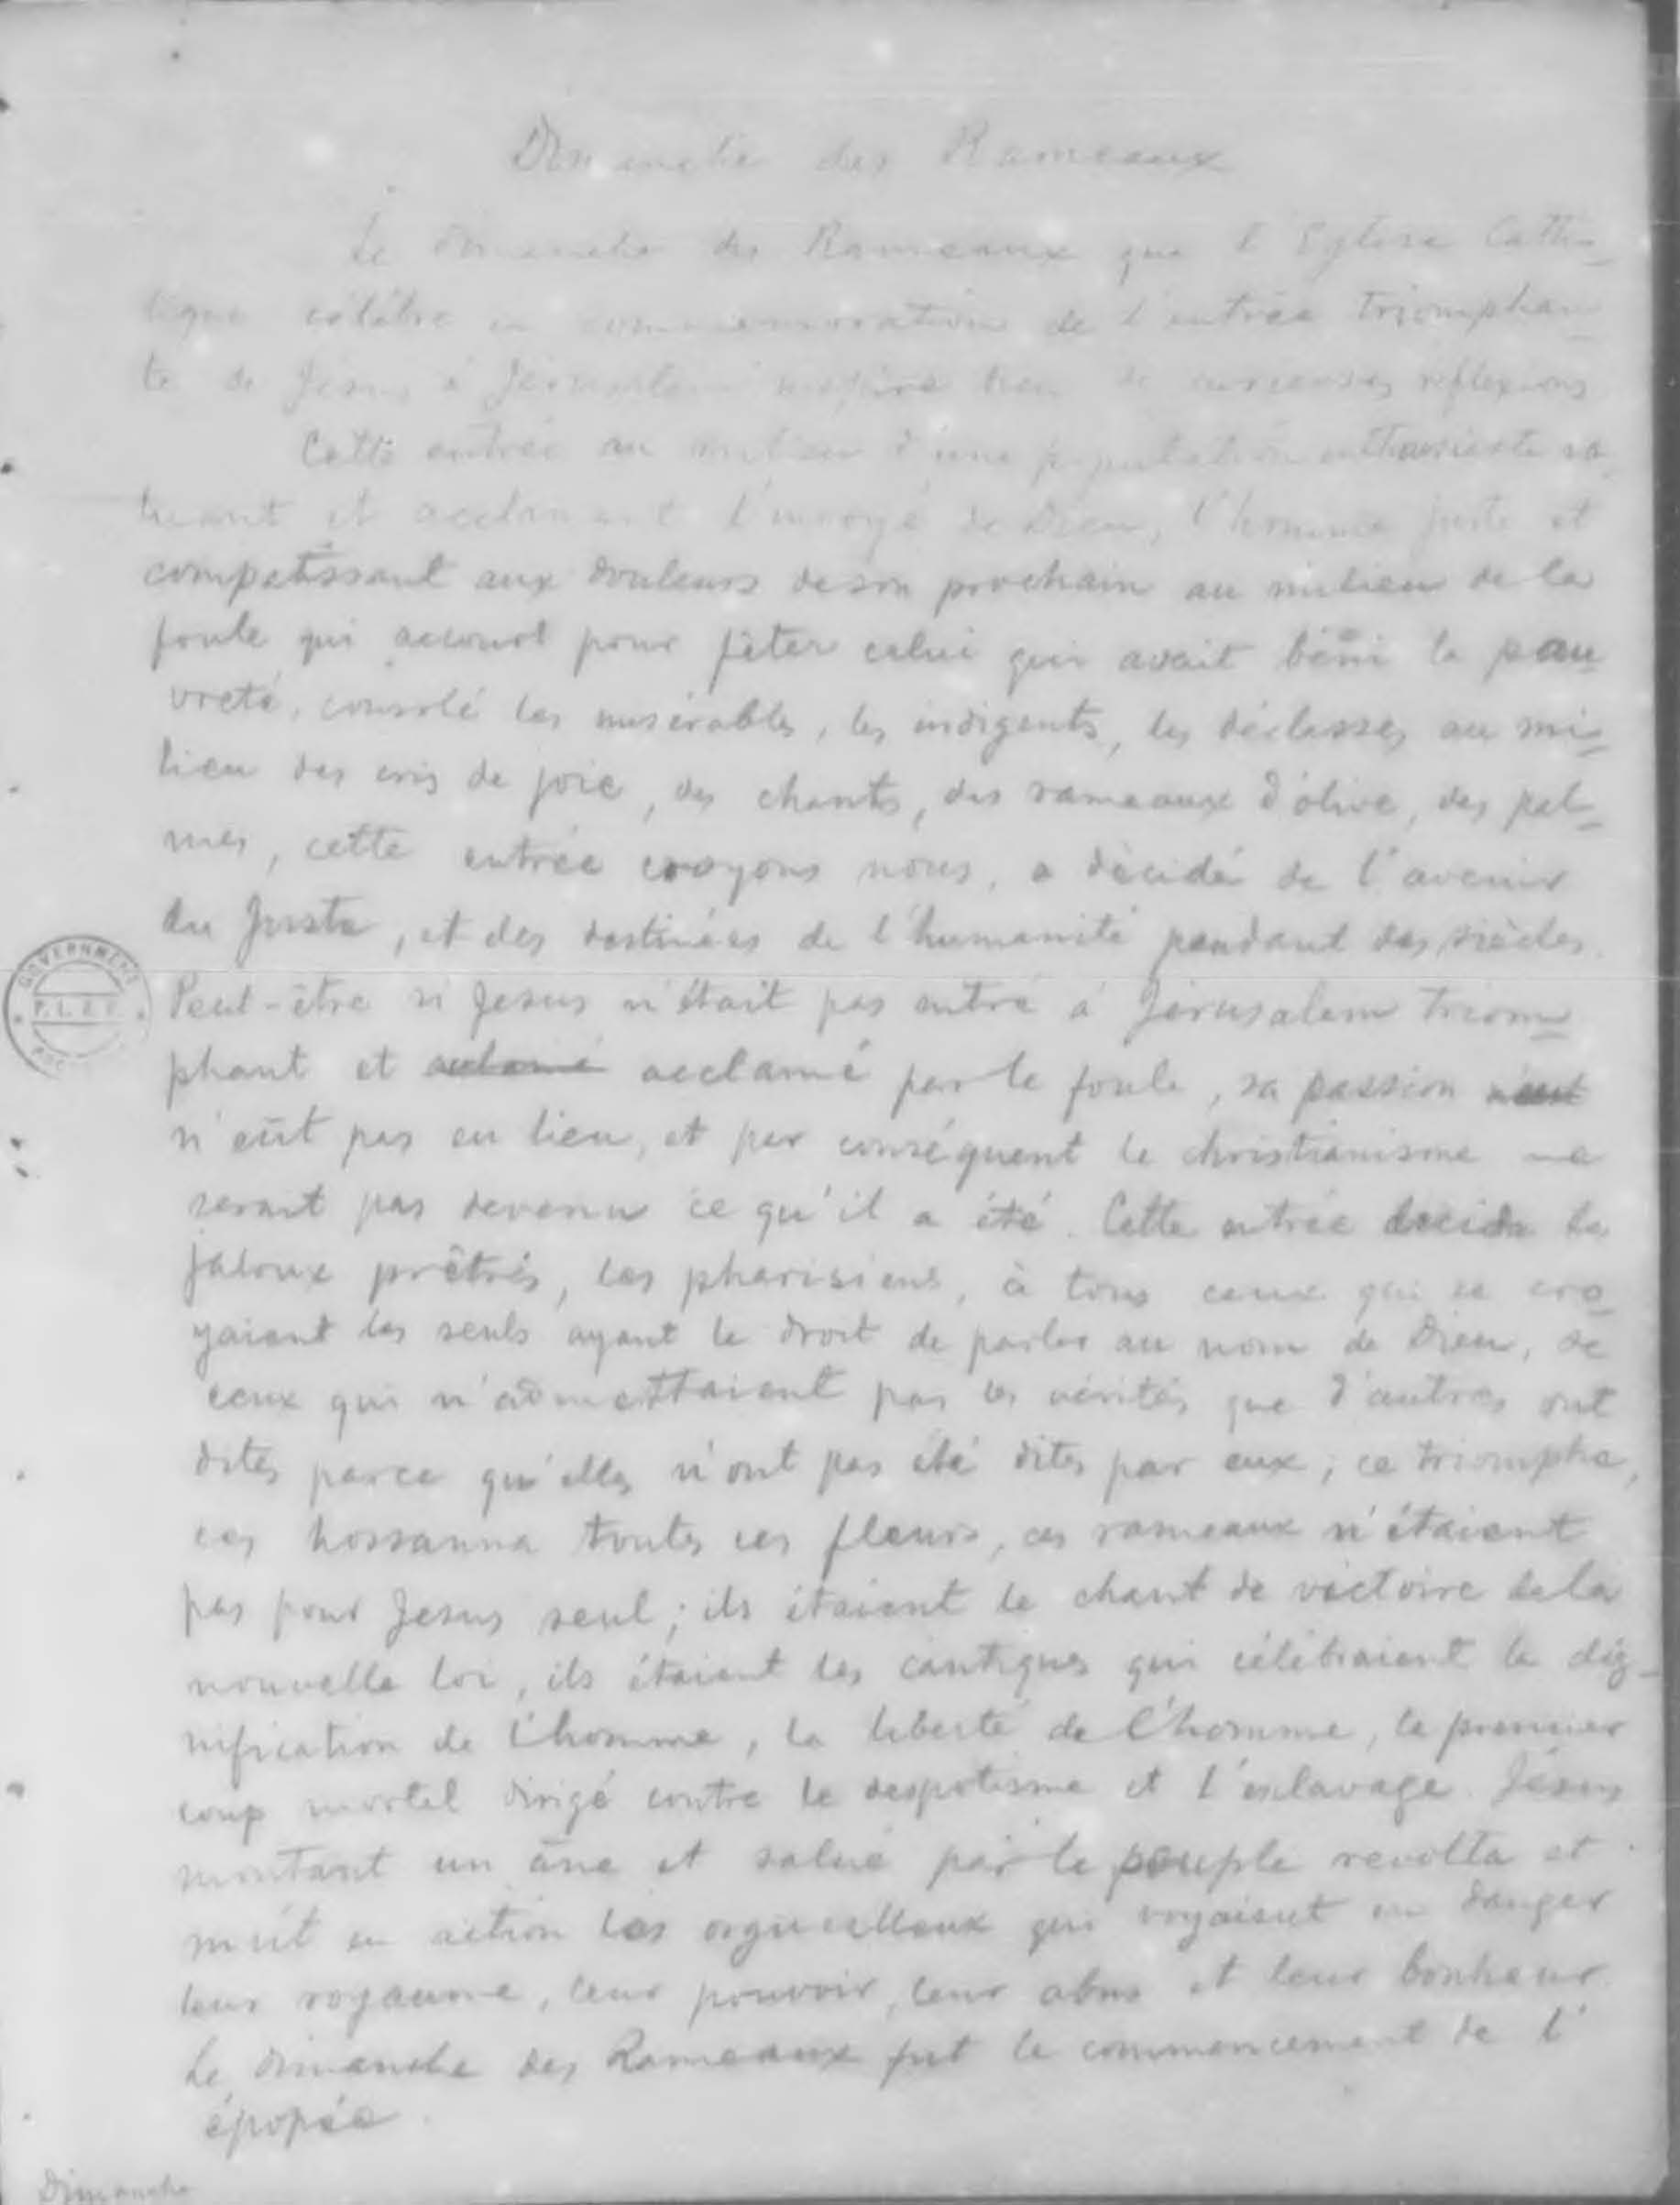 Dimanche des Rameaux
Le dimanche des Rameaux que l'Eglise Catho-
lique célèbre en commemoration de l'entrée triomphan-
te de Jésus à Jérusalem de curieuses reflexions
Cette entrée au milieu d'une population enthousiaste sa-
luant et acclamant l'envoyé de Dieu, l'homme juste et
compatissant aux douleurs de son prochain au milieu de la
foule qui accourt pour fêter celui qui avait béni la pau-
vreté, consolé les miserables, les indigents, les déclassés, au mi-
lieu des cris de joie, des chants, des rameaux d'olive, des pal-
mes, cette entrée croyons nous, a décidé de l'avenir
du Juste, et des destinées de l'humanité pendant des siècles.
Peut-être si Jesus n'était pas entré à Jérusalem triom-
phant et acclamé acclamé par la foule, sa passion n'eut
n'eût pas eu lieu, et par conséquent le christianisme ne
serait pas devenu ce qu'il a été. Cette entrée decida les
jaloux prêtres, les pharisiens, à tous ceux qui se cro-
yaient les seuls ayant le droit de parler au nom de Dieu, de
ceux qui n'admettaient pas les vérités que d'autres ont
dites parce qu'elles n'ont pas été dites par eux; ce triomphe,
ces hossanna toutes ces fleurs, ces rameaux n'étaient
pas pour Jesus seul; ils étaient le chant de victoire de la
nouvelle loi, ils étaient les cantiques qui célébraient la dig-
nification de l'homme, la liberté de l'homme, le premier
coup mortel dirigé contre le despotisme et l'esclavage. Jésus
montant un âne et salué par le peuple revolta et
mit en action les orgueilleux qui voyaient en danger
leur royaume, leur pouvoir, leur abus et leur bonheur.
Le dimanche des Rameaux fut le commencement de l'
épopée.
GOVERNMENT
Dimanche